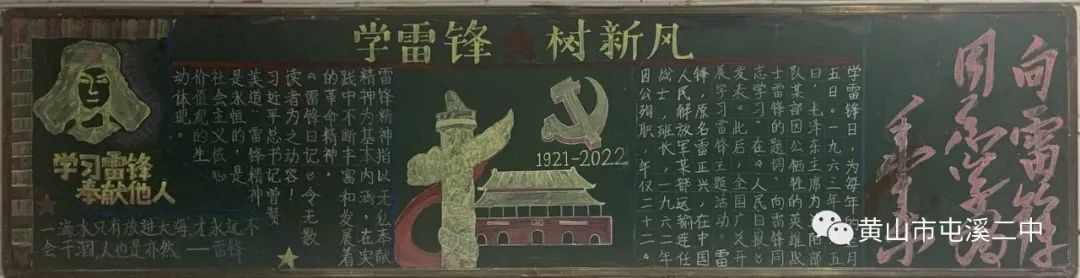 学雷锋 树新风
学习雷锋
奉献他人
一滴水只有放进大海，才永远不
会干涸，人也是亦然。——雷锋
雷锋精神指以无私奉献
精神为基本内涵，在实
践中不断丰富和发展着
的革命精神。
《雷锋日记》令无数
读者为之动容！
习近平总书记曾赞
美道，雷锋精神
是永恒的，是
社会主义核心
价值观的生
动体现。
1921-2022
学雷锋日，为每年的三月
五日。一九六三年三月五
日，毛泽东主席为沈阳部
队某部因公牺牲的英雄战
士雷锋的题词"向雷锋同
志学习"在《人民日报》
发表。此后，全国广泛开
展学习雷锋主题活动。雷
锋，原名雷正兴，在中国
人民解放军某部运输连任
战士，班长，一九六二年
因公殉职，年仅二十二。
向雷锋
同志学习
毛泽东
黄山市屯溪二中